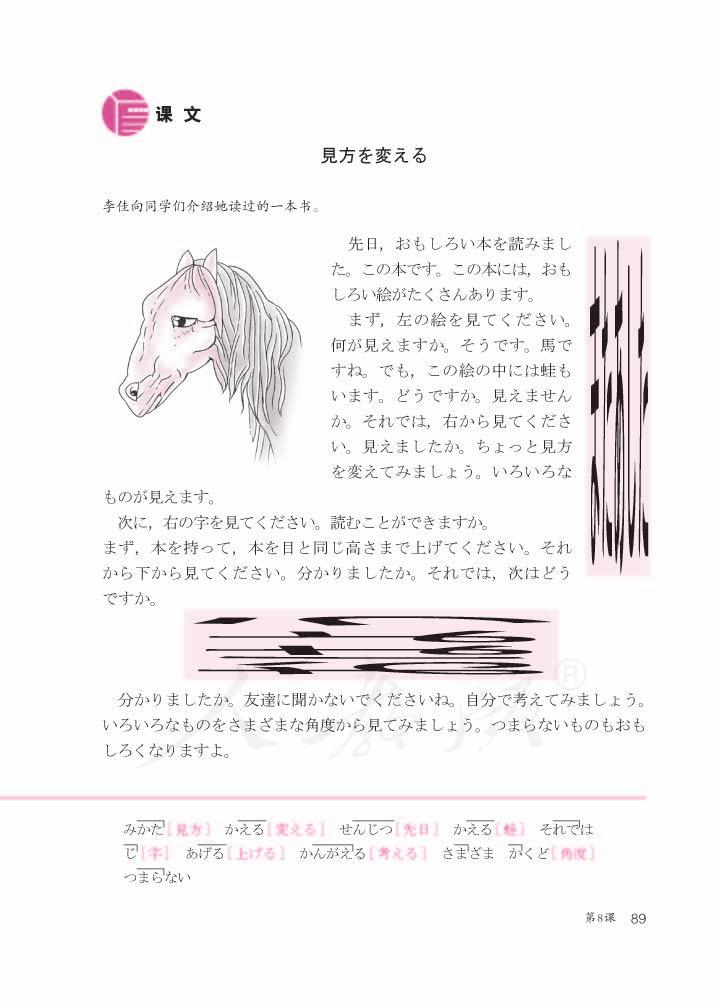 课文
見方を変える
李佳向同学们介绍她读过的一本书。
先日，おもしろい本を読みまし
た。この本です。この本には，おも
しろい絵がたくさんあります。
まず，左の絵を見てください。
何が見えますか。そうです。馬で
すね。でも，この絵の中には蛙も
います。どうですか。見えません
か。それでは，右から見てくださ
い。見えましたか。ちょっと見方
を変えてみましょう。いろいろな
ものが見えます。
次に，右の字を見てください。読むことができますか。
まず，本を持って，本を目と同じ高さまで上げてください。それ
から下から見てください。分かりましたか。それでは，次はどう
ですか。
分かりましたか。友達に聞かないでくださいね。自分で考えてみましょう。
いろいろなものをさまざまな角度から見てみましょう。つまらないものもおも
しろくなりますよ。
みかた［見方］ かえる［変える］ せんじつ［先日］ かえる［蛙］ それでは
じ［字］ あげる［上げる］ かんがえる［考える］ さまざま かくど［角度］
つまらない
第8课 89